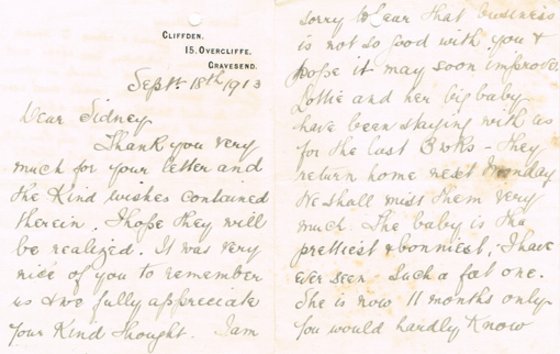 CLIFFDEN,
15, OVERCLIFFE,
GRAVESEND.
Sept. 18th 1913
Dear Sidney
Thank you very
much for your letter and
the Kind wishes contained
therein. I hope they will
be realized. It was very
nice of you to remember
us & we fully appreciate
your Kind thought. I am
sorry to hear that business
is not so good with you &
hope it may soon improve.
Lottie and her big baby
have been staying with us
for the last 3 wks - they
return home next Monday
We shall miss them very
much. The baby is the
prettiest & bonniest, I have
ever seen Such a fat one.
She is now 11 months only
You would hardly Know